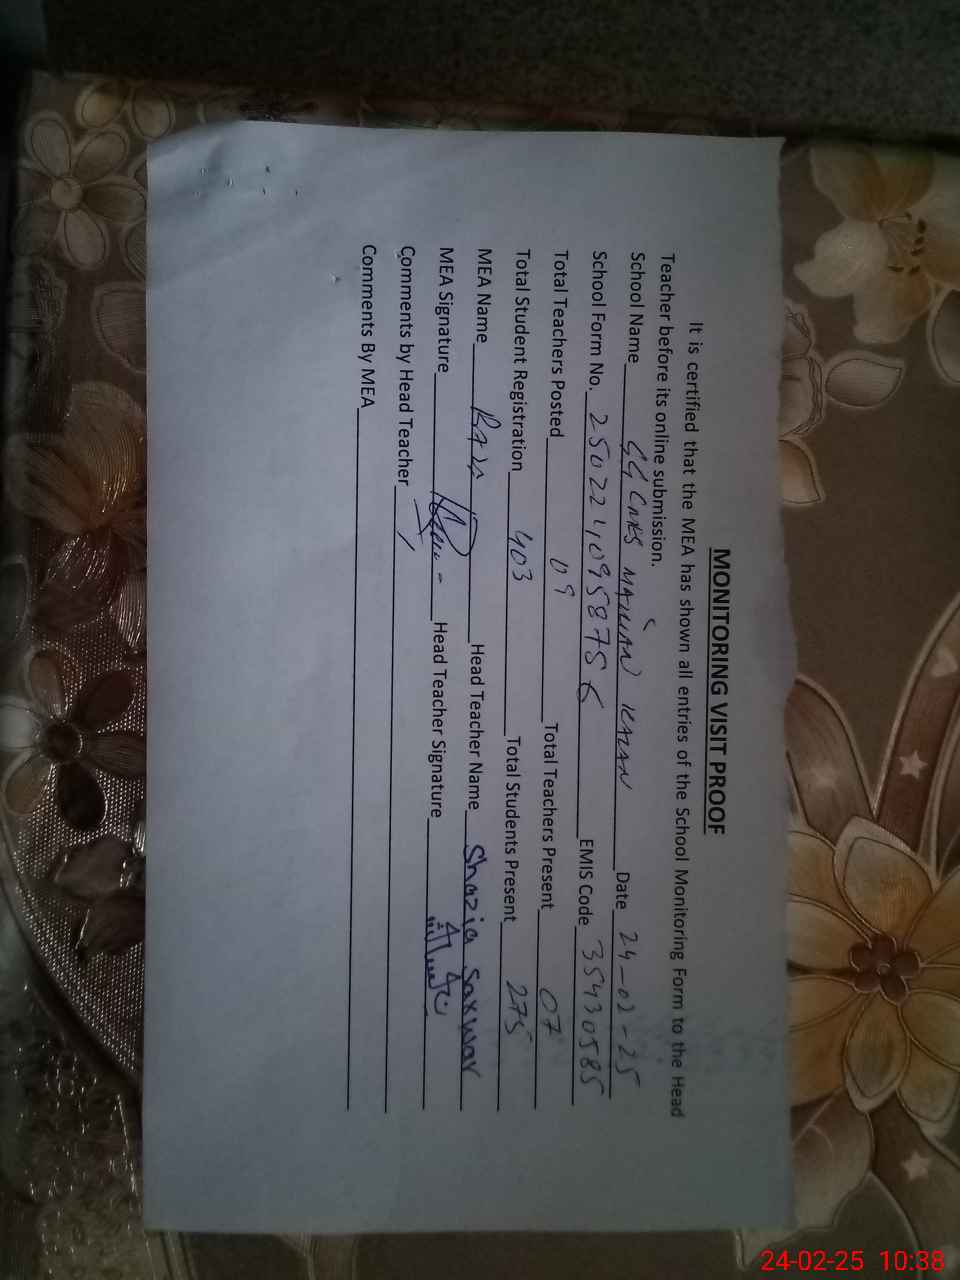 MONITORING VISIT PROOF
It is certified that the MEA has shown all entries of the School Monitoring Form to the Head
Teacher before its online submission.
School Name KALAN Date 24-02-25
School Form No. EMIS Code 35430585
Total Teachers Posted 09 Total Teachers Present 07
Total Student Registration 403 Total Students Present 275
MEA Name Head Teacher Name Shazia Sarwar
MEA Signature Head Teacher Signature
Comments by Head Teacher
Comments By MEA
24-02-25 10:38